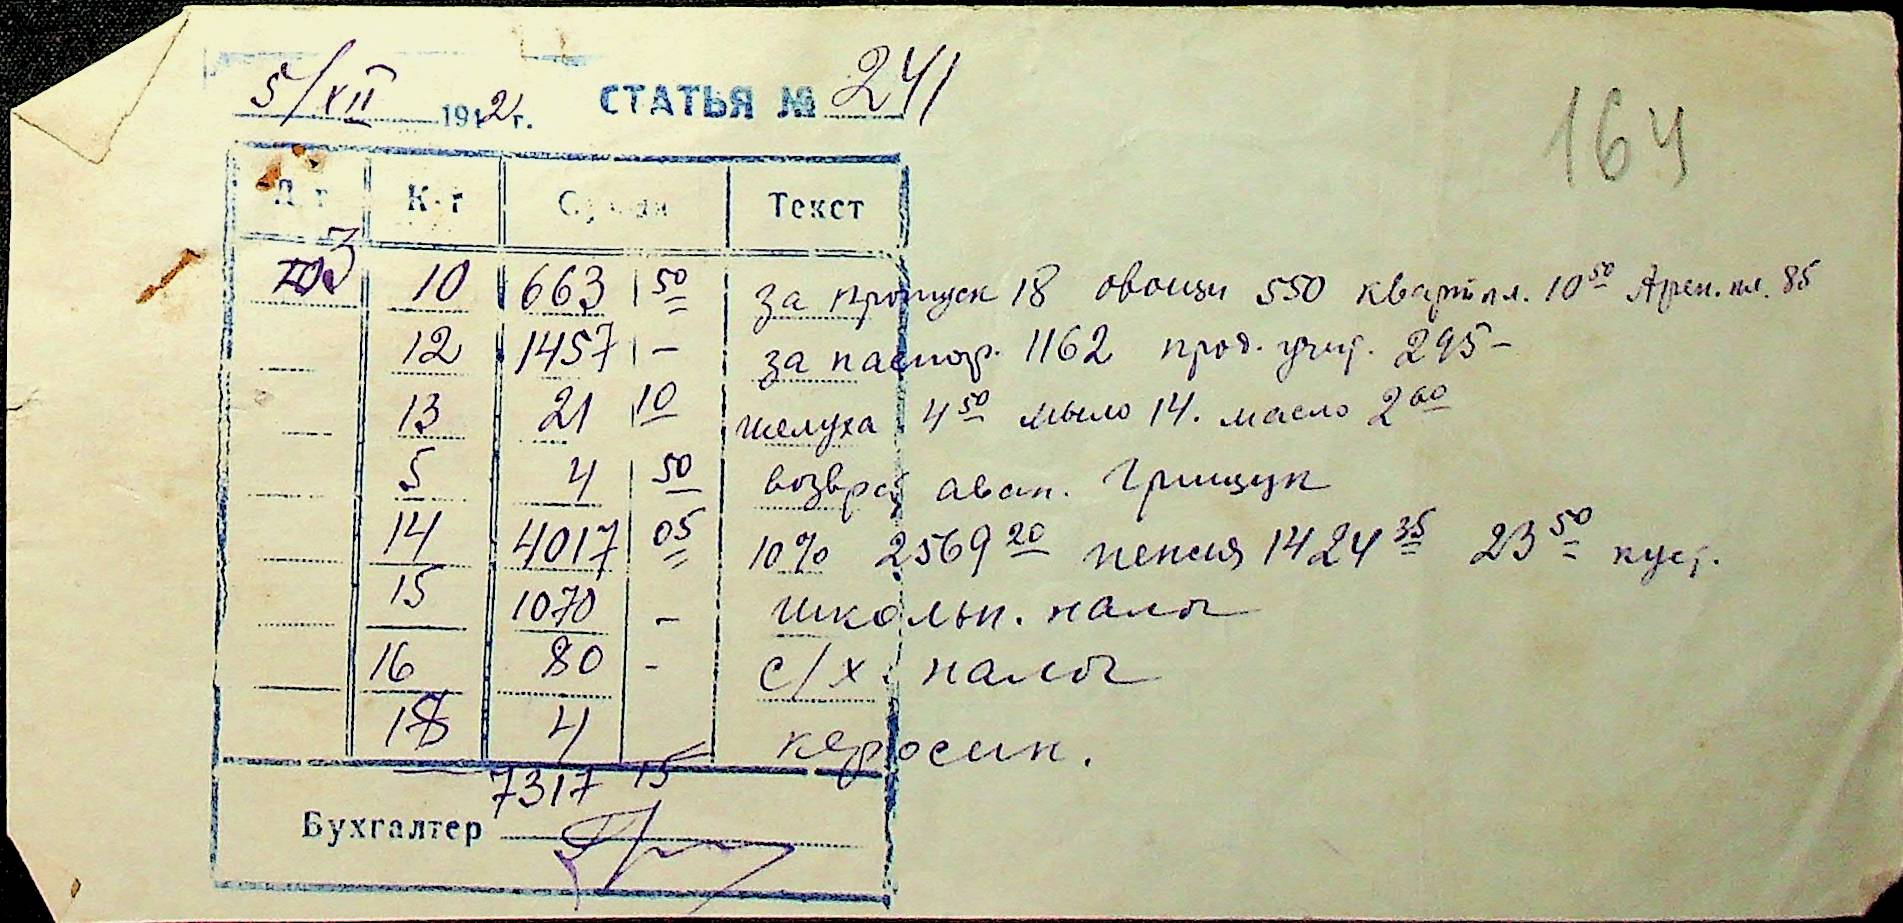 5/XII 1942 г. СТАТЬЯ № 241
164
Д-т К-т Сумма Текст
3 10 663 50 за пропуск 18 овощи 550 квартпл. 10 50 Арен. пл. 85
12 1457 – за паспор. 1162 прод. 295 –
13 21 10 шелуха 4 50 мыло 14. масло 2 60
5 4 50 возврат аван. Грищук
14 4017 05 10% 2569 20 пенсия 1424 35 23 50 куст.
15 1070 – школьн. налог
16 80 - с/х. налог
18 4 керосин.
7317 15
Бухгалтер